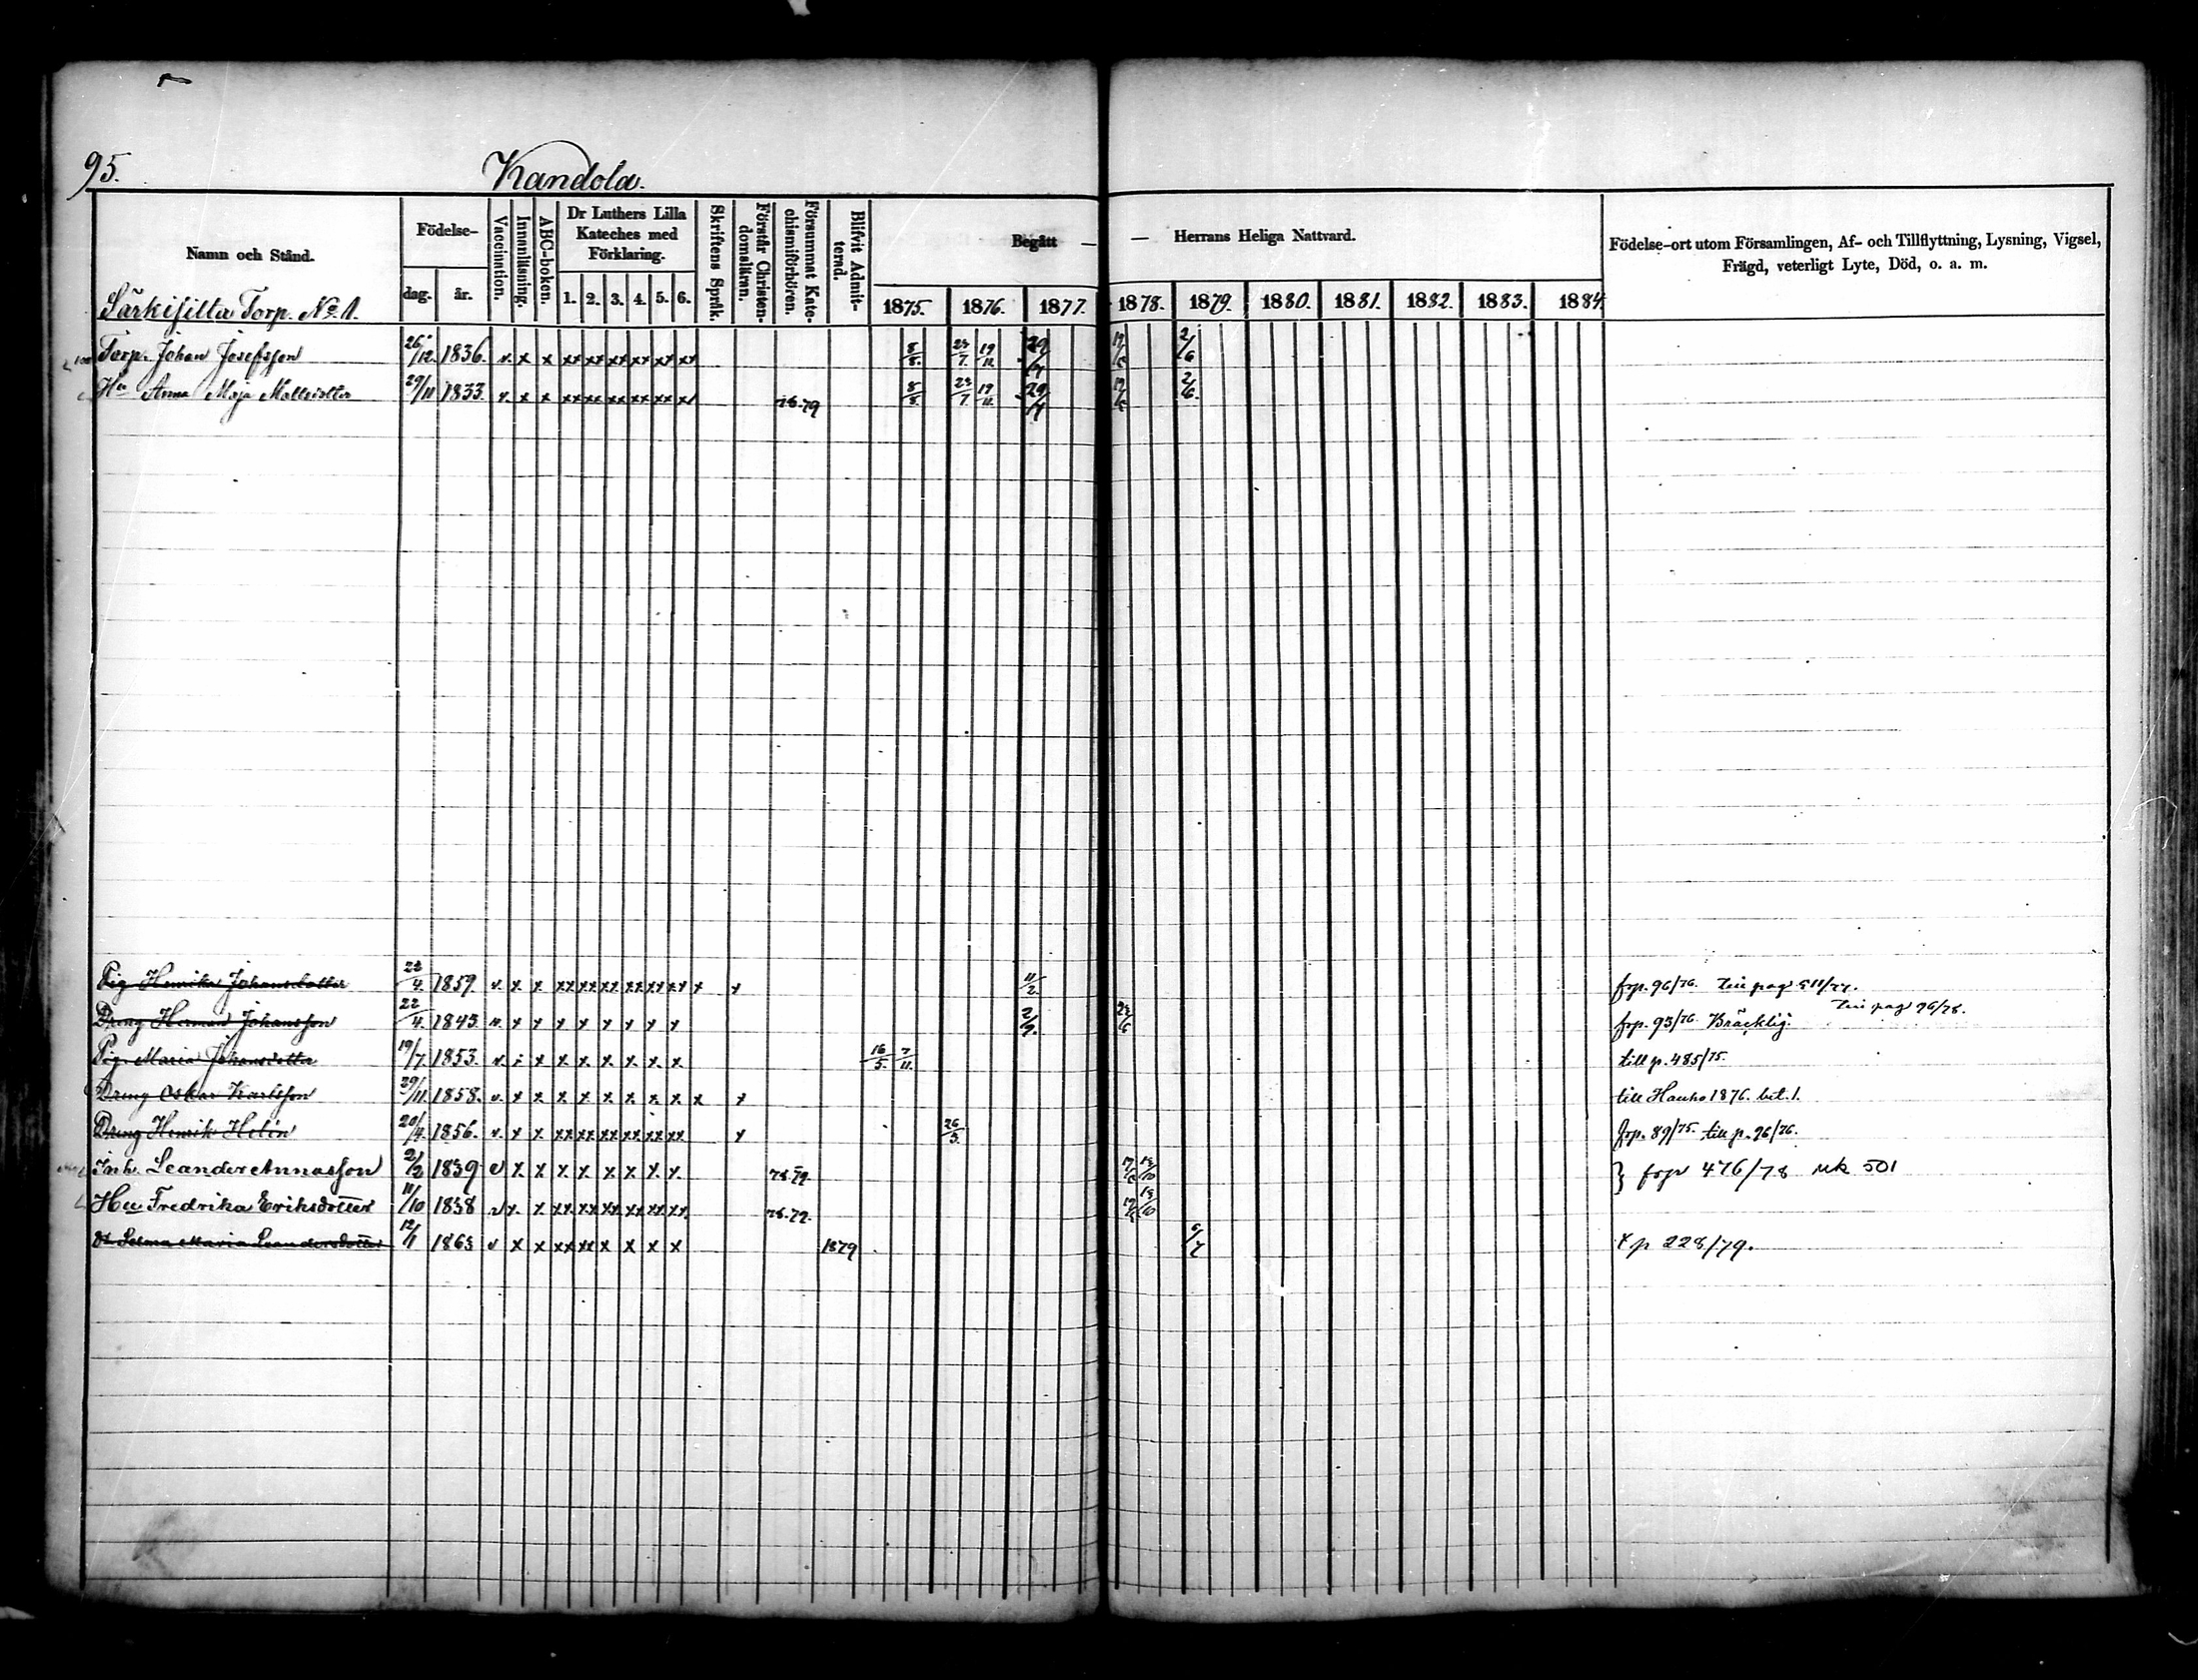 95.
Kandola.
Namn och Stånd.
Födelse-
dag. år.
Vaccination.
Innanläsning.
ABC-boken.
Dr Luthers Lilla Kateches med Förklaring.
1. 2. 3. 4. 5. 6.
Skriftens Språk.
Förstår Christendomsläran.
Försummat Katechismiförhören.
Blifvit Admitterad.
Begått — — Herrans Heliga Nattvard.
1875. 1876. 1877. 1878. 1879. 1880. 1881. 1882. 1883. 1884
Födelse-ort utom Församlingen, Af- och Tillflyttning, Lysning, Vigsel,
Frägd, veterligt Lyte, Död, o. a. m.
Särkisilta Torp. No 1.
Torp. Johan Josefsson 26/12. 1836. v. x x xx xx xx xx xx xx 8/8. 23/7. 19/11. 29/4 2/6
Hu Anna Maja Mattsdotter 29/11 1833. v. x x xx xx xx xx xx xx 78.79 8/8. 23/7. 19/11. 29/4 2/6.
Pig Henrika Johansdotter 22/4. 1859. v. x x xx xx xx xx xx xx x x 11/2. frp. 96/76. till pag 511/77.
Dreng Herman Johansson 22/4. 1843. v. x x x x x x x x frp. 95/76. Bräcklig. till pag 96/78.
Pig. Maria Johansdotter 19/7. 1853. v. x x x x x x x x 16/5. 7/11. till p. 485/75.
Dreng Oskar Karlsson 29/11. 1858. v. x x x x x x x x x x till Hauho 1876. bet. 1.
Dreng Henrik Helén 20/4. 1856. v. x x xx xx xx xx xx xx x 26/3. frp. 89/75. till p. 96/76.
Inh. Leander Annasson 2/2 1839 v x x x x x x x x 78.79. } frp 476/78 uk 501
Hu Fredrika Eriksdotter 11/10 1838 v x. x xx xx xx xx xx xx 78.79.
Dr Selma Maria Leandersdotter 12/1 1863 v x x xx xx x x x x 1879 6/7 t p 228/79.